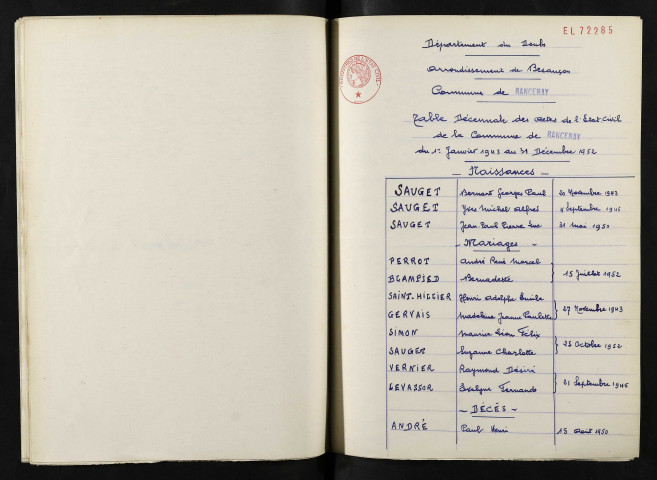 EL 72285
Département du Doubs
Arrondissement de Besançon
Commune de RANCENAY
Table Décennale des actes de l'Etat Civil
de la Commune de RANCENAY
du 1er Janvier 1943 au 31 Décembre 1952
- Naissances -
SAUGET Bernard Georges Paul 20 Novembre 1943
SAUGET Yves Michel Alfred Septembre 1946
SAUGET Jean Paul Pierre Luc 21 mai 1950
- Mariages -
PERROT André René Marcel
BLAMPIED Bernadette 15 Juillet 1952
SAINT-HILLIER Henri Adolphe Emile
GERVAIS Madeleine Jeanne Paulette 27 Novembre 1943
SIMON Maurice Léon Félix
SAUGET Suzanne Charlotte 25 Octobre 1952
VERNIER Raymond Désiré
LEVASSOR Evelyne Fernande 21 Septembre 1946
- DÉCÈS -
ANDRÉ Paul Henri 15 août 1950